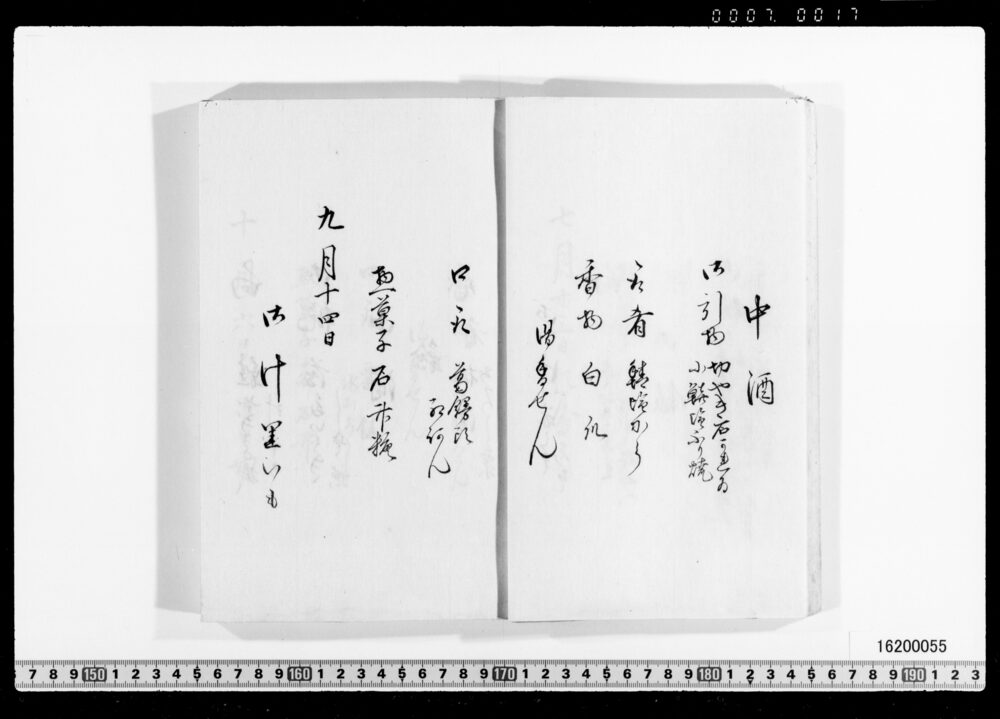 0007. 0017
中酒
御引物 切やき石かれゐ
小鯵塩ふり焼
取肴 鯖塩から
香物 白瓜
湯 香せん
口取 葛饅頭
惣菓子 石衣糖
九月十四日
御汁 里いも
16200055
7 8 9 150 1 2 3 4 5 6 7 8 9 160 1 2 3 4 5 6 7 8 9 170 1 2 3 4 5 6 7 8 9 180 1 2 3 4 5 6 7 8 9 190 1 2 3